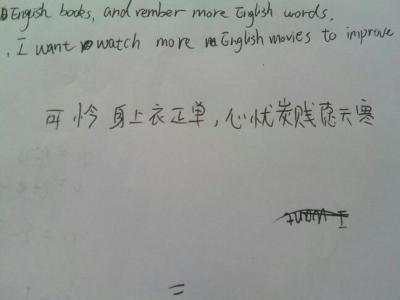 English books, and rember more English words.
I want watch more English movies to improve
可怜身上衣正单，心忧炭贱愿天寒
I want